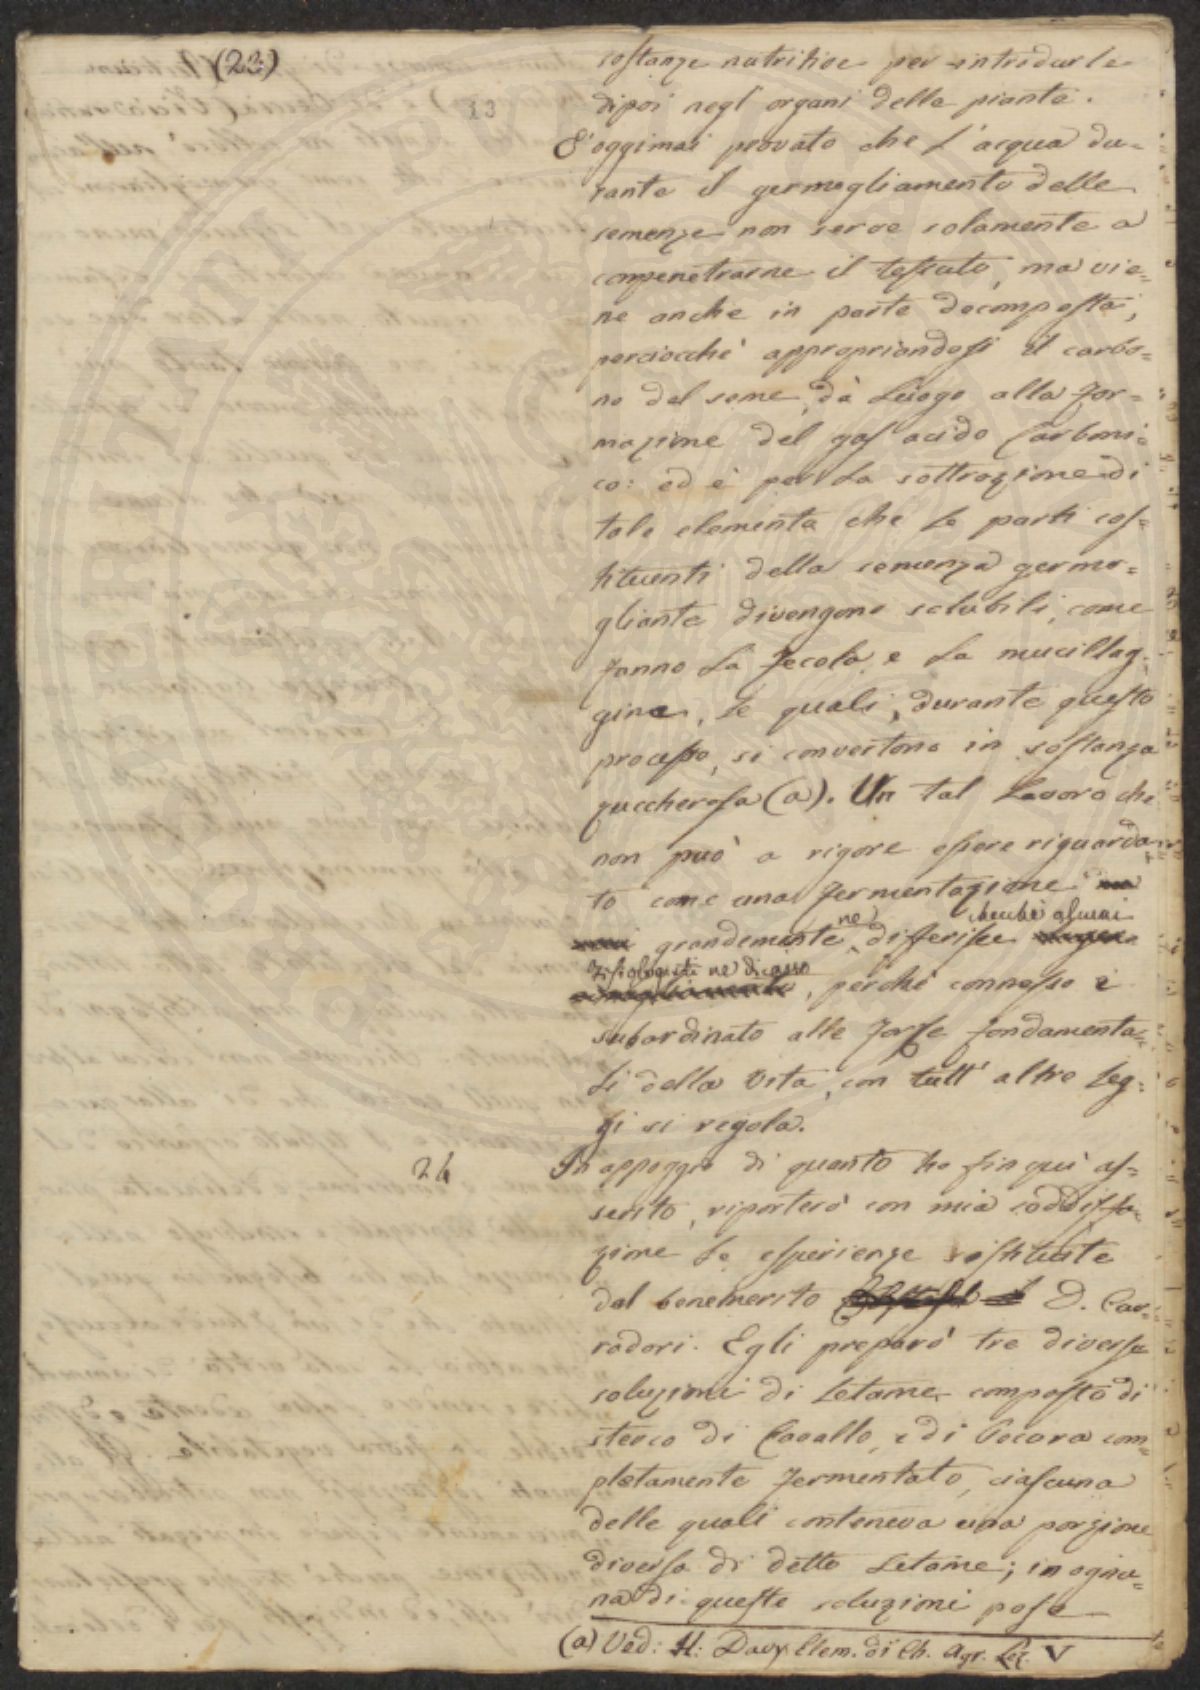 (23)
13
sostanze nutritive per introdurle
dipoi negl' organi delle piante.
E' oggimai provato che l'acqua du=
rante il germogliamento delle
semenze non serve solamente a
compenetrarne il tessuto, ma vie=
ne anche in parte decomposta,
perciocchè appropriandosi il carbo=
no del seme, dà luogo alla for=
mazione del gas acido Carboni=
co: ed è per la sottrazione di
tale elemento che le parti cos=
tituenti della semenza germo=
gliante divengono solubili, come
fanno la fecola, e la mucillag=
gine, le quali, durante questo
processo, si convertono in sostanza
zuccherosa (a). Un tal lavoro che
non può a rigore essere riguarda=
to come una fermentazione
grandemente ne differisce benchè alcuni
fisiologisti ne dicano, perchè connesso e
subordinato alle forze fondamenta=
li della vita, con tutt' altre leg=
gi si regola.
24
In appoggio di quanto ho fin quì as=
serito, riporterò con mia soddisfa=
zione le esperienze istituite
dal benemerito D. Car=
radori. Egli preparò tre diverse
soluzioni di letame composto di
sterco di Cavallo, e di Pecora com=
pletamente fermentato, ciascuna
delle quali conteneva una porzione
diversa di detto letame; in ognu=
na di queste soluzioni pose
(a) Ved: H: Davy Elem. di Ch. Agr. Lez. V